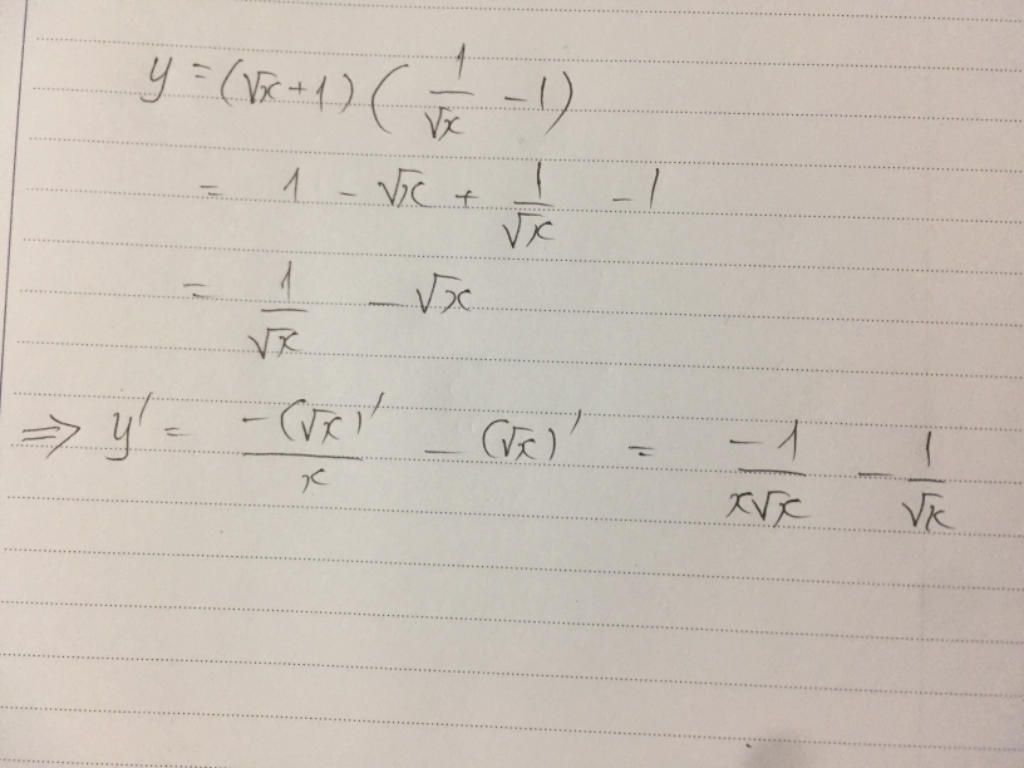 y = (√x + 1) ( 1/√x - 1)
= 1 - √x + 1/√x - 1
= 1/√x - √x
⇒ y' = -(√x)'/x - (√x)' = -1/x√x - 1/√x